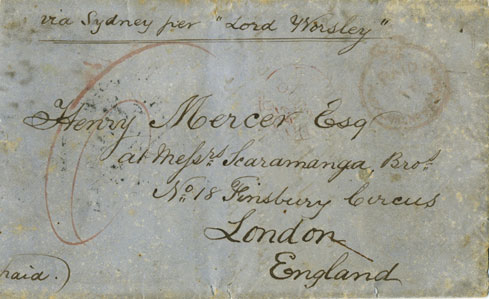 via Sydney per "Lord Worsley"
Henry Mercer Esq
at Messrs. Scaramanga, Bros.
No. 18 Finsbury Circus
London
England
paid.)